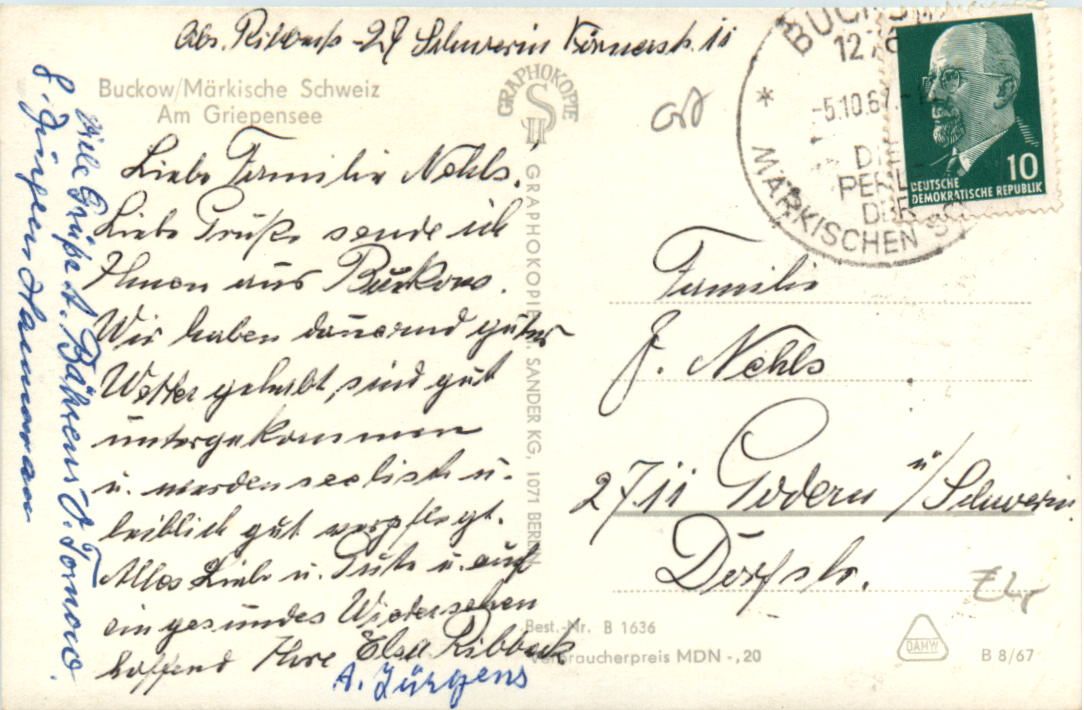 Abs. Ribbeck - 27 Schwerin Körnerstr. 11
Buckow/Märkische Schweiz
Am Griepensee
Liebe Familie Nehls.
Liebe Grüße sende ich
Ihnen aus Buckow.
Wir haben dauernd gutes
Wetter gehabt, sind gut
untergekommen
u. werden seelisch u.
leiblich gut verpflegt.
Alles Liebe u. Gute u. auf
ein gesundes Wiedersehen
hoffend Ihre Elsa Ribbeck
A. Jürgens
Viele Grüße A. Bährens
GRAPHOKOPIE
S
H
GRAPHOKOPIE H. SANDER KG, 1071 BERLIN
BUCKOW
12
-5.10.67.-
DIE
PERLE
DER
* MÄRKISCHEN SC
10
DEUTSCHE
DEMOKRATISCHE REPUBLIK
Familie
J. Nehls
2711 Godern ü/Schwerin
Dorfstr.
Best.-Nr. B 1636
Verbraucherpreis MDN -,20
DAHW
B 8/67